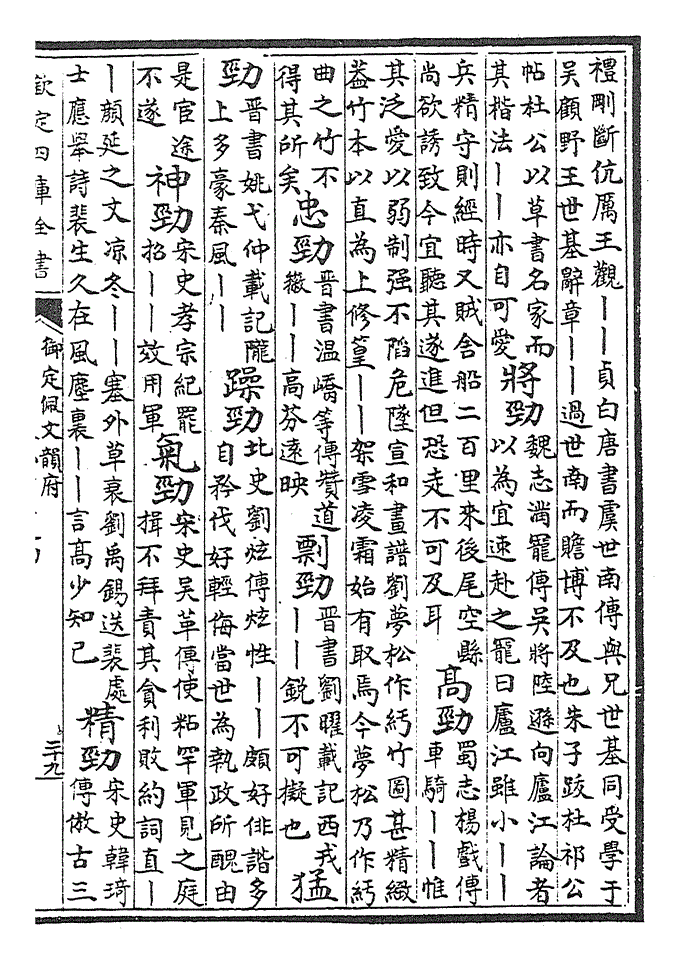 禮剛斷伉厲王觀丨丨貞白唐書虞世南傳與兄世基同受學于
吳顧野王世基辭章丨丨過世南而贍博不及也朱子跋杜祁公
帖杜公以草書名家而
其楷法丨丨亦自可愛
將勁
魏志滿寵傳吳將陸遜向廬江論者
以為宜速赴之寵曰廬江雖小丨丨
兵精守則經時又賊舍船二百里來後尾空縣
尚欲誘致今宜聽其遂進但恐走不可及耳
高勁
蜀志楊戲傳
車騎丨丨惟
其泛愛以弱制强不陷危墜宣和畫譜劉夢松作紆竹圖甚精緻
葢竹本以直為上修篁丨丨架雪凌霜始有取焉今夢松乃作紆
曲之竹不
得其所矣
忠勁
晉書温嶠等傳贊道
徽丨丨高芬遠映
剽勁
晉書劉曜載記西戎
丨丨銳不可擬也
猛
勁
晉書姚弋仲載記隴
上多豪秦風丨丨
躁勁
北史劉炫傳炫性丨丨頗好俳諧多
自矜伐好輕侮當世為執政所醜由
是官途
不遂
神勁
宋史孝宗紀罷
招丨丨效用軍
氣勁
宋史吳革傳使粘罕軍見之庭
揖不拜責其貪利敗約詞直丨
丨顔延之文凉冬丨丨塞外草衰劉禹錫送裴處
士應舉詩裴生久在風塵裏丨丨言高少知己
精勁
宋史韓琦
傳倣古三
欽定四庫全書
御定佩文韻府
三十九